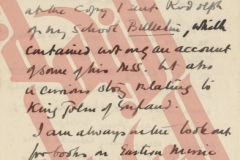 at the Copy I sent Rodolph
of my School Bulletin, which
contained not only an account
of some of his MSS. but also
a curious story relating to
King John of England.
I am always on the look out
for books on Eastern Music